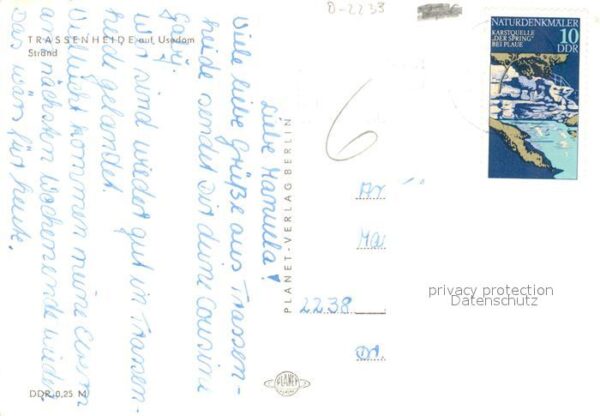 D-2238
TRASSENHEIDE auf Usedom
Strand
NATURDENKMÄLER
10
KARSTQUELLE
„DER SPRING"
BEI PLAUE
DDR
6
Liebe Manuela!
Viele liebe Grüße aus Trassen-
heide sendet Dir deine Cousine
Wir sind wieder gut in Trassen-
heide gelandet.
Vielleicht kommen meine Eltern
am nächsten Wochenende wieder
Das wär's für heute.
PLANET-VERLAG BERLIN
2238
privacy protection
Datenschutz
PLANET
DDR 0,25 M